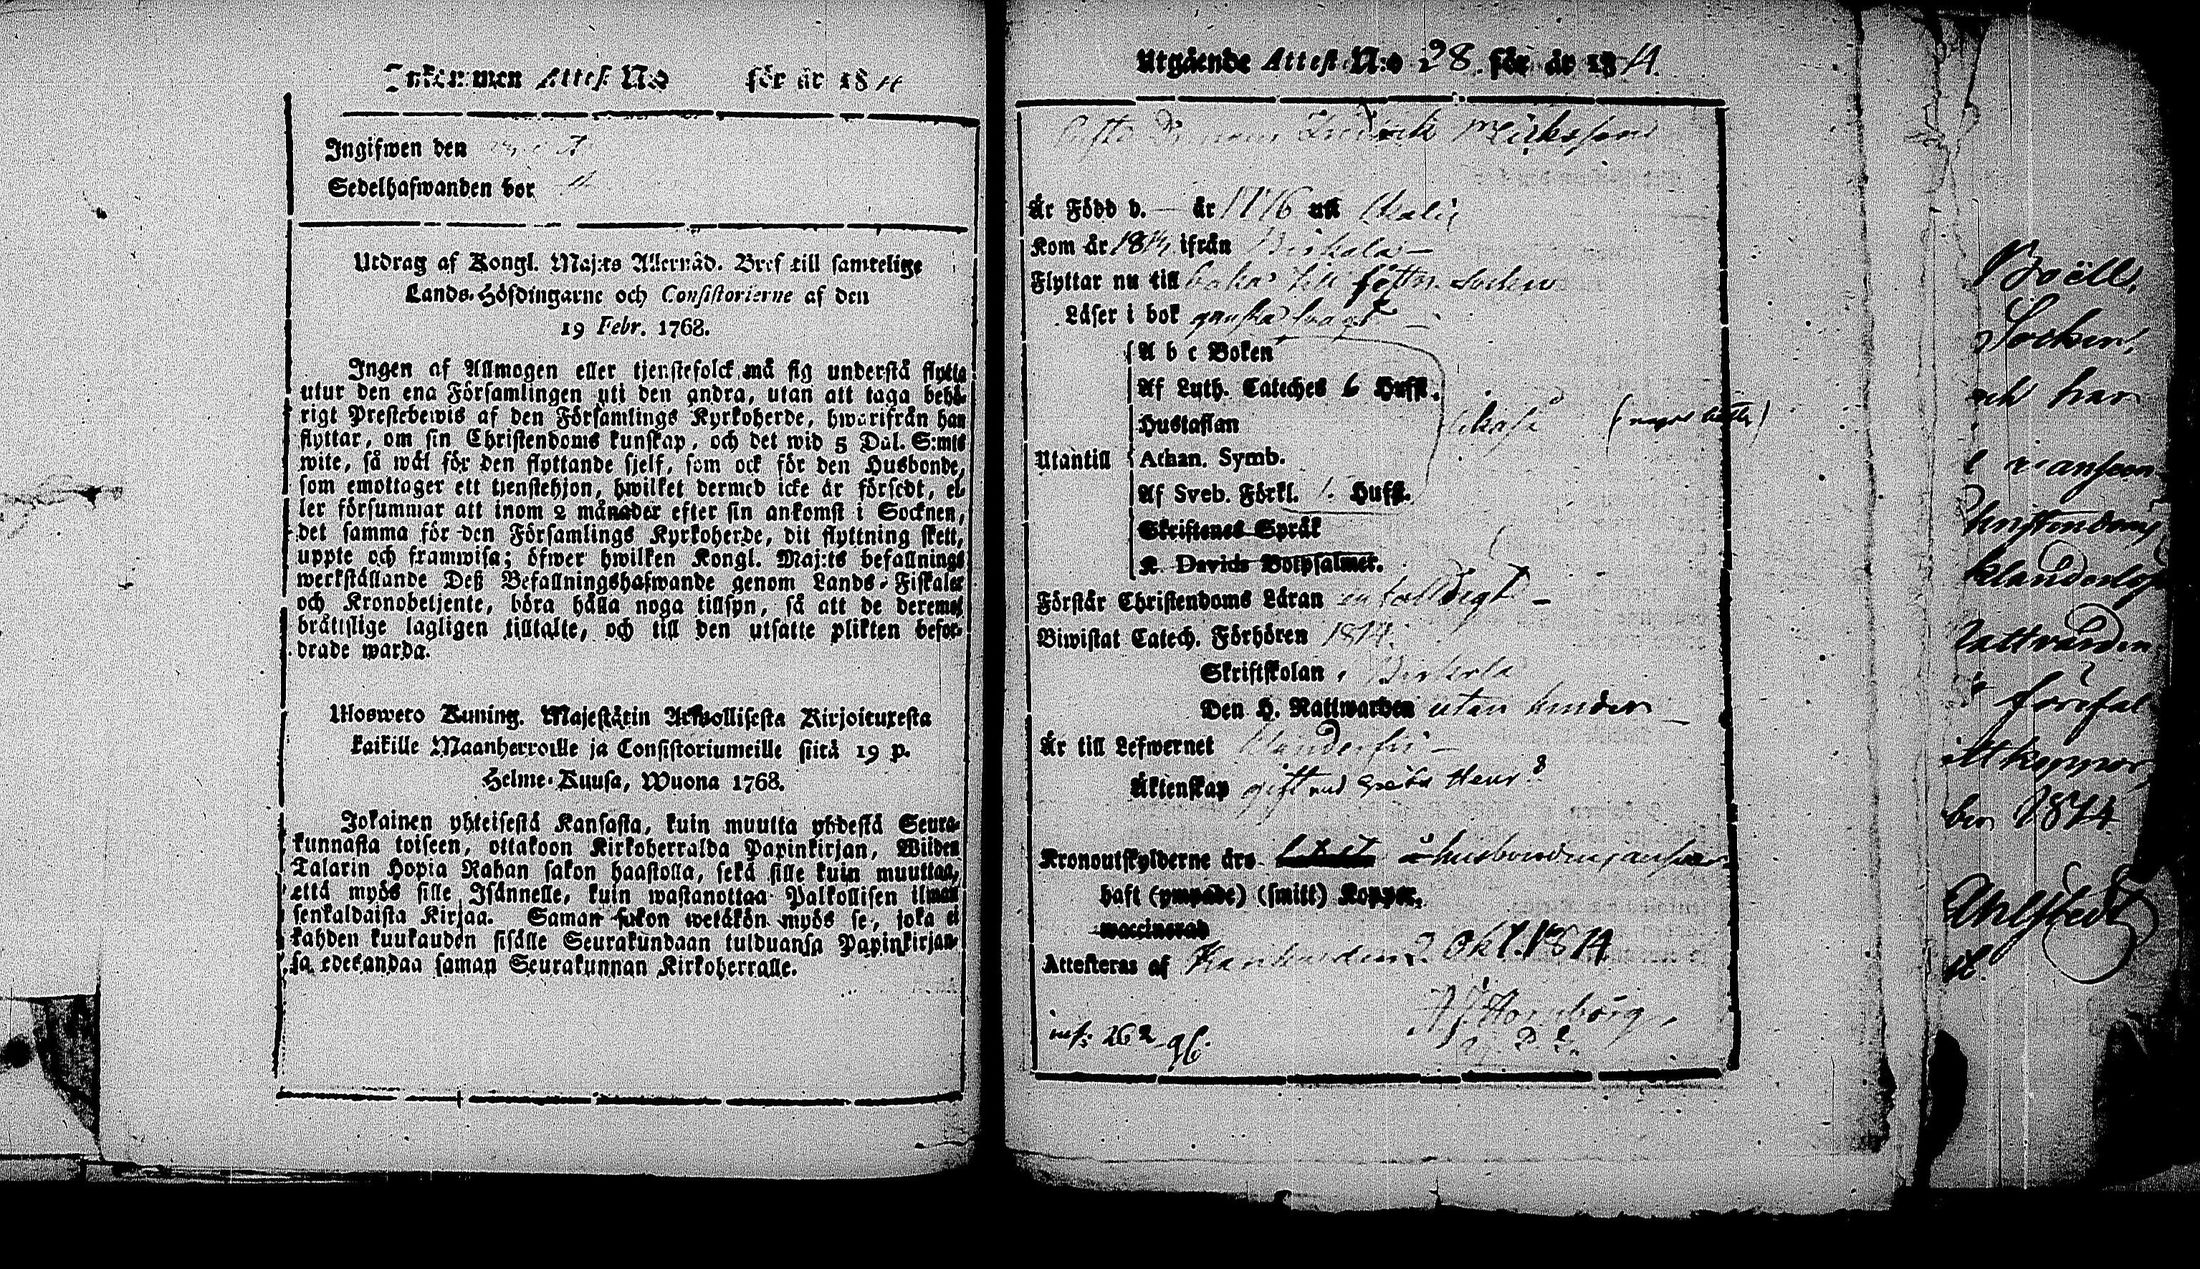 Inkommen Attest No för år 18
Ingifwen den
Sedelhafwanden bor
Utdrag af Kongl. Maj:ts Allernåd. Bref till samtelige
Lands-Höfdingarne och Consistorierne af den
19 Febr. 1768.
Ingen af Allmogen eller tjenstefolck må sig understå flytta
utur den ena Församlingen uti den andra, utan att taga behö-
rigt Prestebewis af den Församlings Kyrkoherde, hwarifrån han
flyttar, om sin Christendoms kunskap, och det wid 5 Dal. S:mts
wite, så wäl för den flyttande sjelf, som ock för den Husbonde,
som emottager ett tjenstehjon, hwilket dermed icke är försedt, el-
ler försummar att inom 2 månader efter sin ankomst i Socknen,
det samma för den Församlings Kyrkoherde, dit flyttning skett,
uppte och framwisa; öfwer hwilken Kongl. Maj:ts befallnings
werkställande Deß Befallningshafwande genom Lands-Fiskaler
och Kronobetjente, böra hålla noga tillsyn, så att de deremot
bråttslige lagligen tilltalte, och till den utsatte plikten befor-
drade warda.
Ulosweto Kuning. Majestätin Armollisesta Kirjoituxesta
kaikille Maanherroille ja Consistoriumeille siitä 19 p.
Helme-Kuusa, Wuona 1768.
Jokainen yhteisestä Kansasta, kuin muutta yhdestä Seura-
kunnasta toiseen, ottakoon Kirkoherralda Papinkirjan, Wiiden
Talarin Hopia Rahan sakon haastolla, sekä sille kuin muuttaa,
että myös sille Isännelle, kuin wastanottaa Palkollisen ilman
senkaldaista Kirjaa. Saman sakon wetäkön myös se, joka ei
kahden kuukauden sisälle Seurakundaan tulduansa Papinkirjan-
sa edesandaa saman Seurakunnan Kirkoherralle.
Utgående Attest N:o 28 för år 1814.
Fredrik
Är Född d. — år 1776 uti
Kom år 18 ifrån
Flyttar nu till Socken
Läser i bok ganska svagt —
A b c Boken
Af Luth. Cateches 6 Hufst.
Hustaflan
Utantill Athan. Symb.
Af Sveb. Förkl. 1. Hufst.
Skriftenes Språk
K. Davids Botpsalmer.
Förstår Christendoms Läran enfalldigt —
Biwistat Catech. Förhören 1814.
Skriftskolan i
Den H. Nattwarden utan hinder —
Är till Lefwernet klanderfri —
Äktenskap gift med Greta Henr:
Kronoutskylderne äro å husbondens answar
haft (ympade) (smitt) Koppor.
waccinerad
Attesteras af 2 Okt. 1814
Hornborg.
inf: 262
96.
Boëll,
Socken,
och har
Christendoms
klanderlös
Nattvarden
förefal
ittkoppor
ber 1814
Ahlstedt